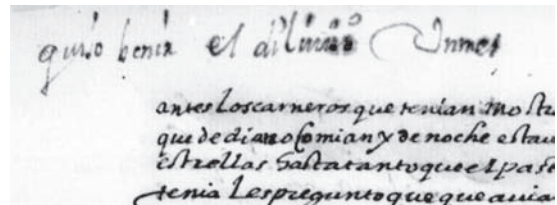 quiso benir el diluuio Un mes
antes los carneros que tenian mostr
que de dia no Comian y de noche estau
estrellas hasta tanto que el past
tenia Les pregunto que que auia